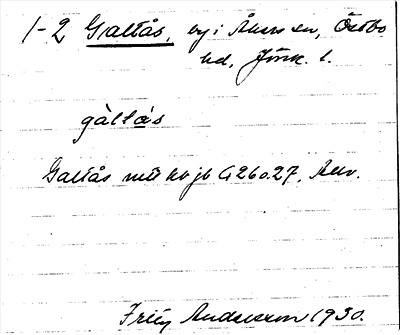 1-2 Galtås, by i Åkers sn, Östbo
hd, Jönk. l.
gàltås
Galtås mtl kb jb 1260.27, Allv.
Fritz Andersson 1930.